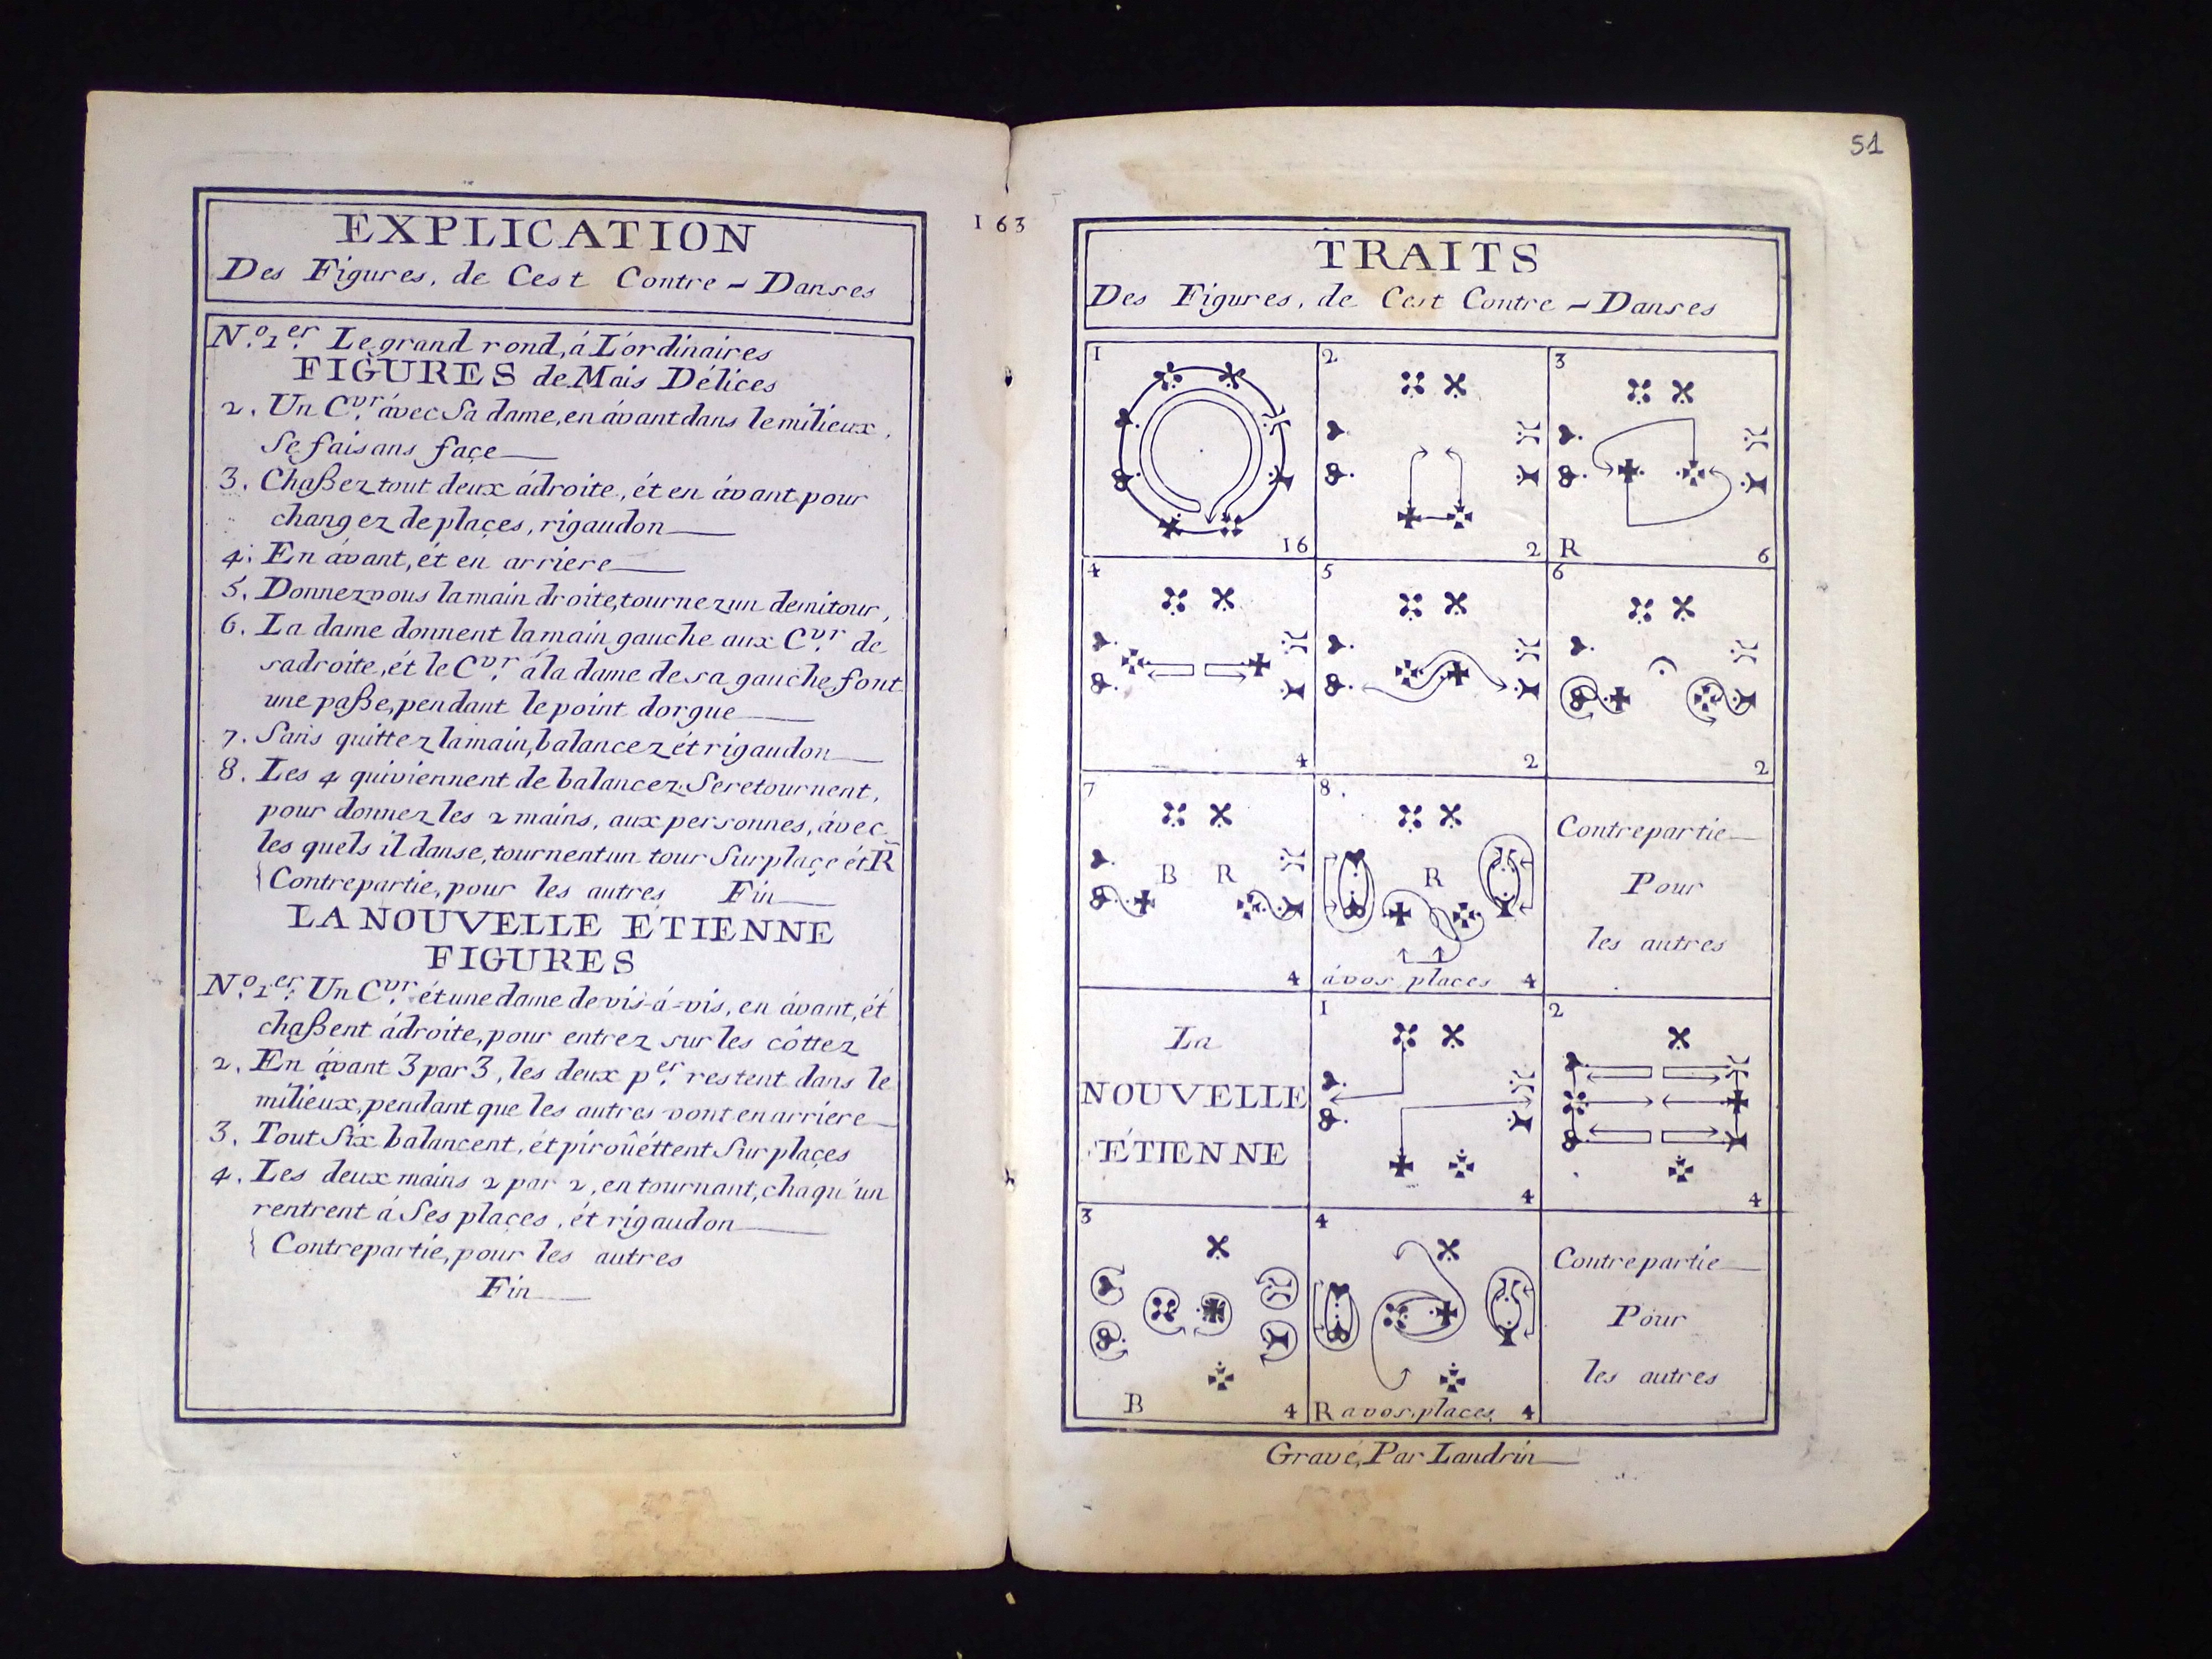 EXPLICATION
Des Figures, de Cest Contre-Danses
N.o 1.er Le grand rond, á L'ordinaires
FIGURES de Mais Délices
2. Un C.vr ávec Sa dame, en ávant dans le milieux,
Se faisans façe
3. Chaßez tout deux ádroite, ét en ávant pour
changez de plaçes, rigaudon
4. En ávant, ét en arriere
5. Donnez vous la main droite, tournez un demitour,
6. La dame donnent la main gauche aux C.vr de
sadroite, ét le C.vr á la dame de sa gauche, font
une paße, pendant le point dorgue
7. Sans quittez lamain, balancez ét rigaudon
8. Les 4 quiviennent de balancez, Seretournent,
pour donnez les 2 mains, aux personnes, ávec
les quels il danse, tournent un tour Sur plaçe ét R
Contrepartie, pour les autres Fin
LA NOUVELLE ETIENNE
FIGURES
N.o 1.er Un C.vr ét une dame de vis-á-vis, en ávant, ét
chaßent ádroite, pour entrez sur les côttez
2. En ávant 3 par 3, les deux p.er restent dans le
milieux, pendant que les autres vont en arriere
3. Tout Six balancent, ét piroûéttent Sur plaçes
4. Les deux mains 2 par 2, en tournant, chaqu'un
rentrent á Ses plaçes, ét rigaudon
Contrepartie, pour les autres
Fin
163
51
TRAITS
Des Figures, de Cest Contre-Danses
1
16
2
2
3
R
6
4
4
5
2
6
2
7
B R
4
8.
R
ávos places 4
Contrepartie
Pour
les autres
La
NOUVELLE
ÉTIENNE
1
4
2
4
3
B
4
4
R avos places 4
Contrepartie
Pour
les autres
Gravé, Par Landrin